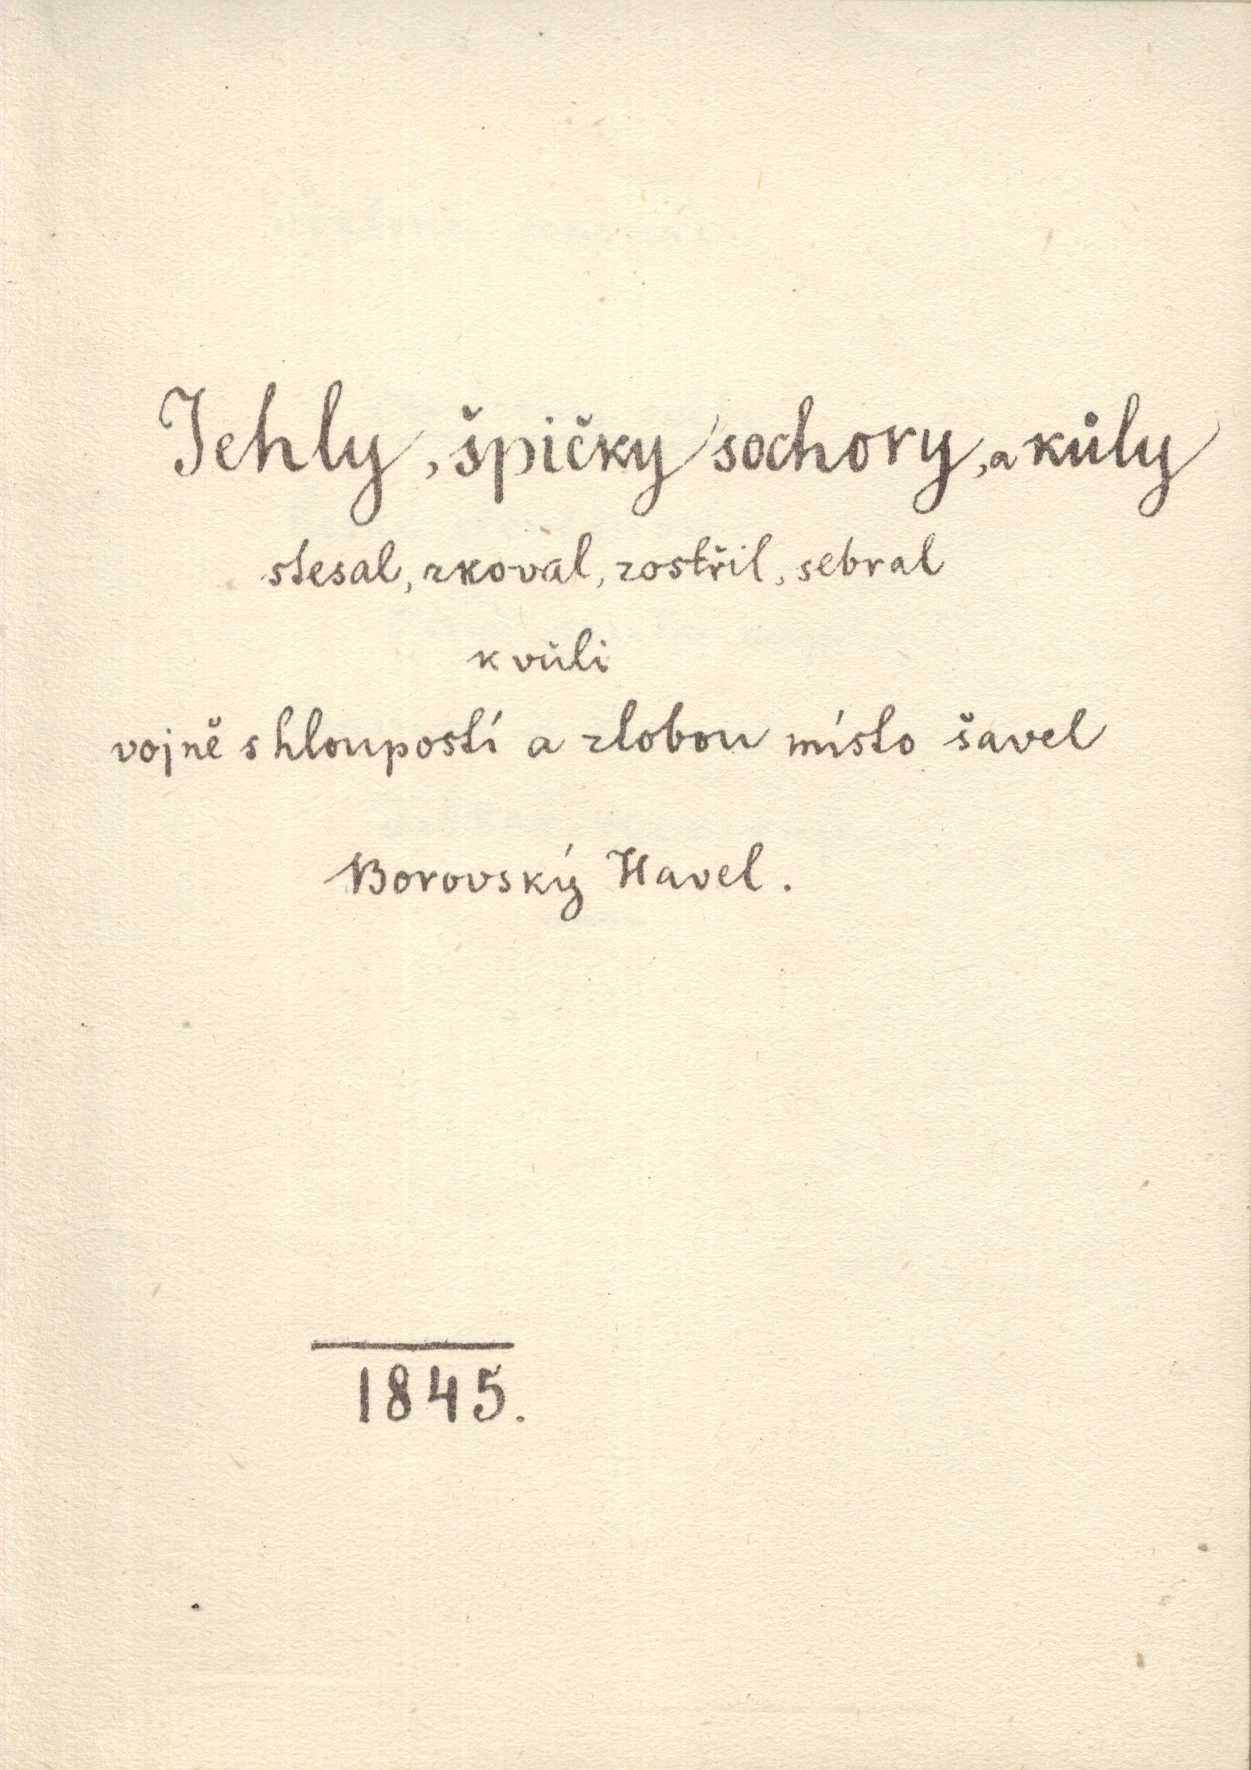 Jehly, špičky sochory, a kůly
stesal, zkoval, zostřil, sebral
k vůli
vojně s hloupostí a zlobou místo šavel
Borovský Havel.
1845.